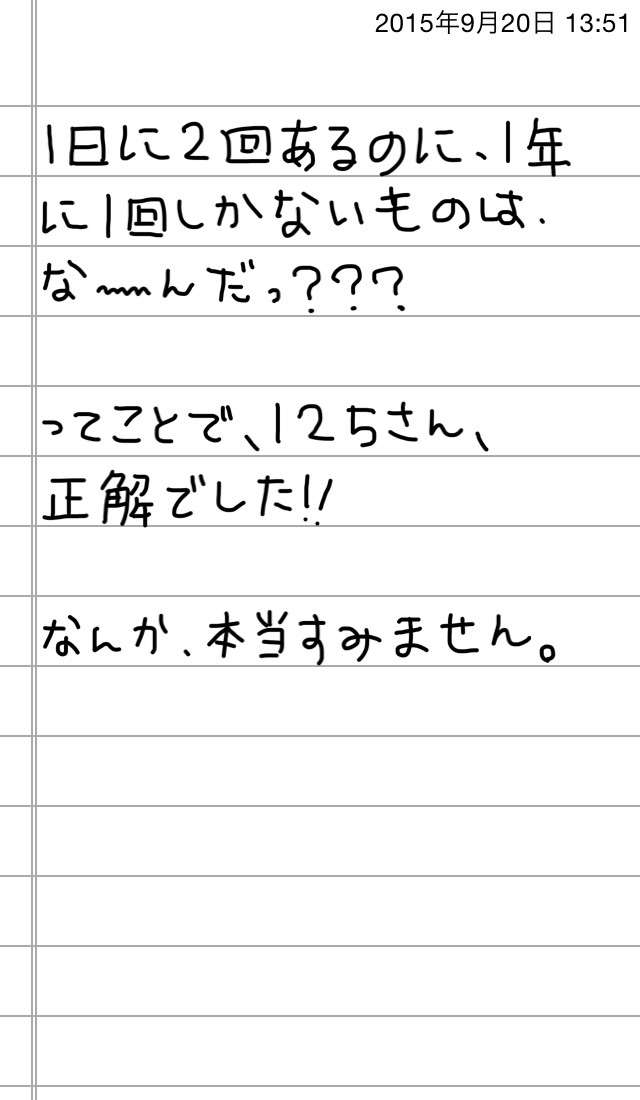 2015年9月20日 13:51
1日に2回あるのに、1年
に1回しかないものは、
な〜〜んだっ???
ってことで、125さん、
正解でした!!
なんか、本当すみません。